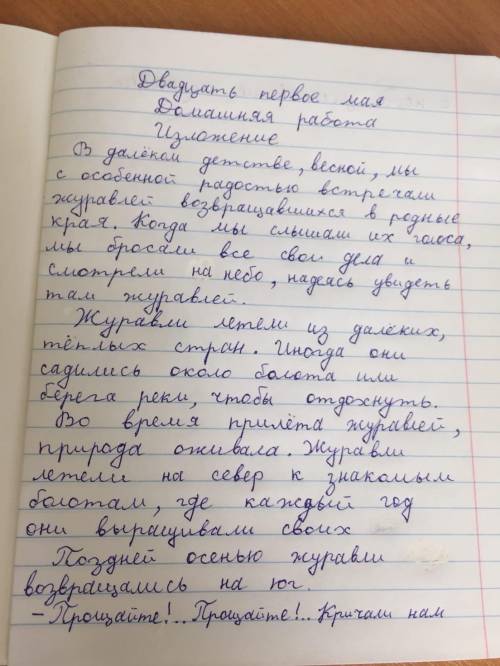 Двадцать первое мая
Домашняя работа
Изложение
В далёком детстве, весной, мы
с особенной радостью встречали
журавлей возвращавшихся в родные
края. Когда мы слышали их голоса,
мы бросали все свои дела и
смотрели на небо, надеясь увидеть
там журавлей.
Журавли летели из далёких,
тёплых стран. Иногда они
садились около болота или
берега реки, чтобы отдохнуть.
Во время прилёта журавлей,
природа оживала. Журавли
летели на север к знакомым
болотам, где каждый год
они выращивали своих
Поздней осенью журавли
возвращались на юг.
– Прощайте!.. Прощайте!.. Кричали нам